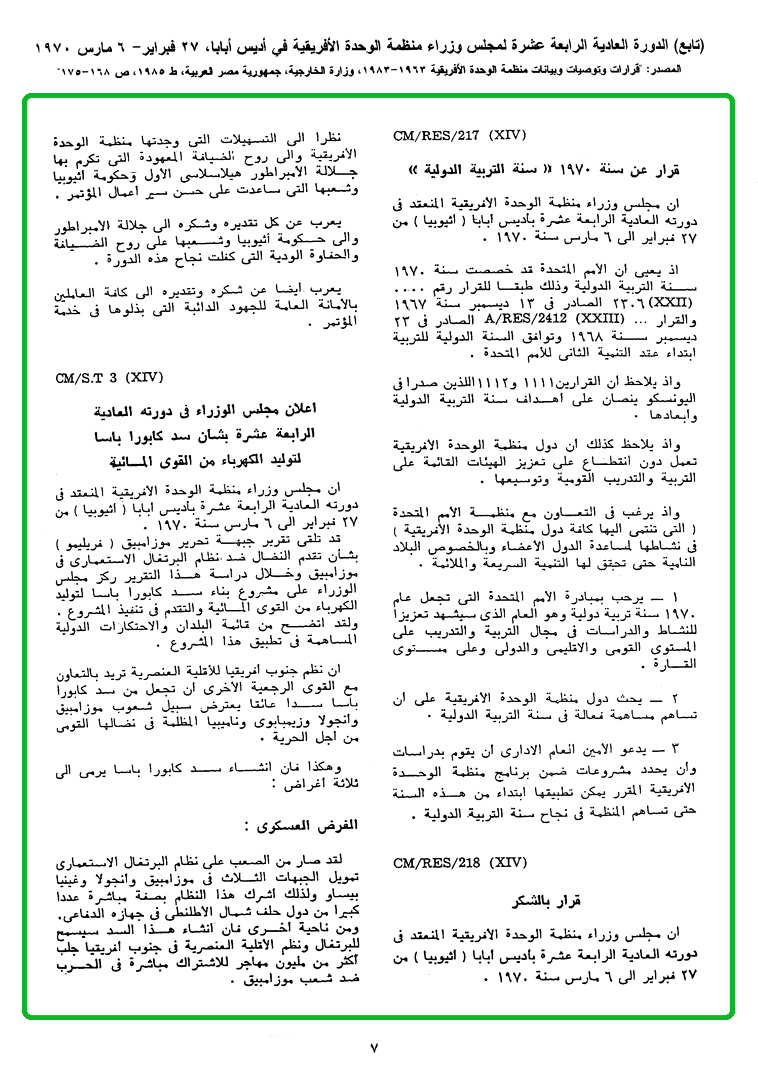 (تابع) الدورة العادية الرابعة عشرة لمجلس وزراء منظمة الوحدة الأفريقية في أديس أبابا، ٢٧ فبراير- ٦ مارس ١٩٧٠
المصدر: "قرارات وتوصيات وبيانات منظمة الوحدة الأفريقية ١٩٦٣-١٩٨٣، وزارة الخارجية، جمهورية مصر العربية، ط ١٩٨٥، ص ١٦٨-١٧٥"
CM/RES/217 (XIV)
قرار عن سنة ١٩٧٠ « سنة التربية الدولية »
ان مجلس وزراء منظمة الوحدة الأفريقية المنعقد فى
دورته العادية الرابعة عشرة بأديس أبابا ( أثيوبيا ) من
٢٧ فبراير الى ٦ مارس سنة ١٩٧٠ .
اذ يعى ان الأمم المتحدة قد خصصت سنة ١٩٧٠
سنة التربية الدولية وذلك طبقا للقرار رقم ....
(XXII) ٢٣٠٦ الصادر فى ١٣ ديسمبر سنة ١٩٦٧
والقرار ... A/RES/2412 (XXIII) الصادر فى ٢٣
ديسمبر سنة ١٩٦٨ وتوافق السنة الدولية للتربية
ابتداء عقد التنمية الثانى للأمم المتحدة .
واذ يلاحظ أن القرارين ١١١١ و ١١١٢ اللذين صدرا فى
اليونسكو ينصان على اهداف سنة التربية الدولية
وابعادها .
واذ يلاحظ كذلك ان دول منظمة الوحدة الأفريقية
تعمل دون انقطاع على تعزيز الهيئات القائمة على
التربية والتدريب القومية وتوسيعها .
واذ يرغب فى التعاون مع منظمة الأمم المتحدة
( التى تنتمى اليها كافة دول منظمة الوحدة الأفريقية )
فى نشاطها لمساعدة الدول الأعضاء وبالخصوص البلاد
النامية حتى تحقق لها التنمية السريعة والملائمة .
١ — يرحب بمبادرة الأمم المتحدة التى تجعل عام
١٩٧٠ سنة تربية دولية وهو العام الذى سيشهد تعزيزا
للنشاط والدراسات فى مجال التربية والتدريب على
المستوى القومى والاقليمى والدولى وعلى مستوى
القارة .
٢ — يحث دول منظمة الوحدة الأفريقية على ان
تساهم مساهمة فعالة فى سنة التربية الدولية .
٣ — يدعو الأمين العام الادارى ان يقوم بدراسات
وأن يحدد مشروعات ضمن برنامج منظمة الوحدة
الأفريقية المقرر يمكن تطبيقها ابتداء من هذه السنة
حتى تساهم المنظمة فى نجاح سنة التربية الدولية .
CM/RES/218 (XIV)
قرار بالشكر
ان مجلس وزراء منظمة الوحدة الأفريقية المنعقد فى
دورته العادية الرابعة عشرة بأديس أبابا ( أثيوبيا ) من
٢٧ فبراير الى ٦ مارس سنة ١٩٧٠ .
نظرا الى التسهيلات التى وجدتها منظمة الوحدة
الأفريقية والى روح الضيافة المعهودة التى تكرم بها
جلالة الامبراطور هيلاسلاسى الأول وحكومة أثيوبيا
وشعبها التى ساعدت على حسن سير أعمال المؤتمر .
يعرب عن كل تقديره وشكره الى جلالة الامبراطور
والى حكومة أثيوبيا وشعبها على روح الضيافة
والحفاوة الودية التى كفلت نجاح هذه الدورة .
يعرب ايضا عن شكره وتقديره الى كافة العاملين
بالأمانة العامة للجهود الدائبة التى بذلوها فى خدمة
المؤتمر .
CM/S.T 3 (XIV)
اعلان مجلس الوزراء فى دورته العادية
الرابعة عشرة بشأن سد كابورا باسا
لتوليد الكهرباء من القوى المائية
ان مجلس وزراء منظمة الوحدة الأفريقية المنعقد فى
دورته العادية الرابعة عشرة بأديس أبابا ( أثيوبيا ) من
٢٧ فبراير الى ٦ مارس سنة ١٩٧٠ .
قد تلقى تقرير جبهة تحرير موزامبيق ( فريليمو )
بشأن تقدم النضال ضد نظام البرتغال الاستعمارى فى
موزامبيق وخلال دراسة هذا التقرير ركز مجلس
الوزراء على مشروع بناء سد كابورا باسا لتوليد
الكهرباء من القوى المائية والتقدم فى تنفيذ المشروع .
ولقد اتضح من قائمة البلدان والاحتكارات الدولية
المساهمة فى تطبيق هذا المشروع .
ان نظم جنوب افريقيا للأقلية العنصرية تريد بالتعاون
مع القوى الرجعية الأخرى أن تجعل من سد كابورا
باسا سدا عائقا يعترض سبيل شعوب موزامبيق
وأنجولا وزيمبابوى وناميبيا المظلمة فى نضالها القومى
من أجل الحرية .
وهكذا فان انشاء سد كابورا باسا يرمى الى
ثلاثة أغراض :
الغرض العسكرى :
لقد صار من الصعب على نظام البرتغال الاستعمارى
تمويل الجبهات الثلاث فى موزامبيق وأنجولا وغينيا
بيساو ولذلك أشرك هذا النظام بصفة مباشرة عددا
كبيرا من دول حلف شمال الأطلنطى فى جهازه الدفاعى.
ومن ناحية أخرى فان انشاء هذا السد سيسمح
للبرتغال ونظم الأقلية العنصرية فى جنوب افريقيا جلب
أكثر من مليون مهاجر للاشتراك مباشرة فى الحرب
ضد شعب موزامبيق .
٧